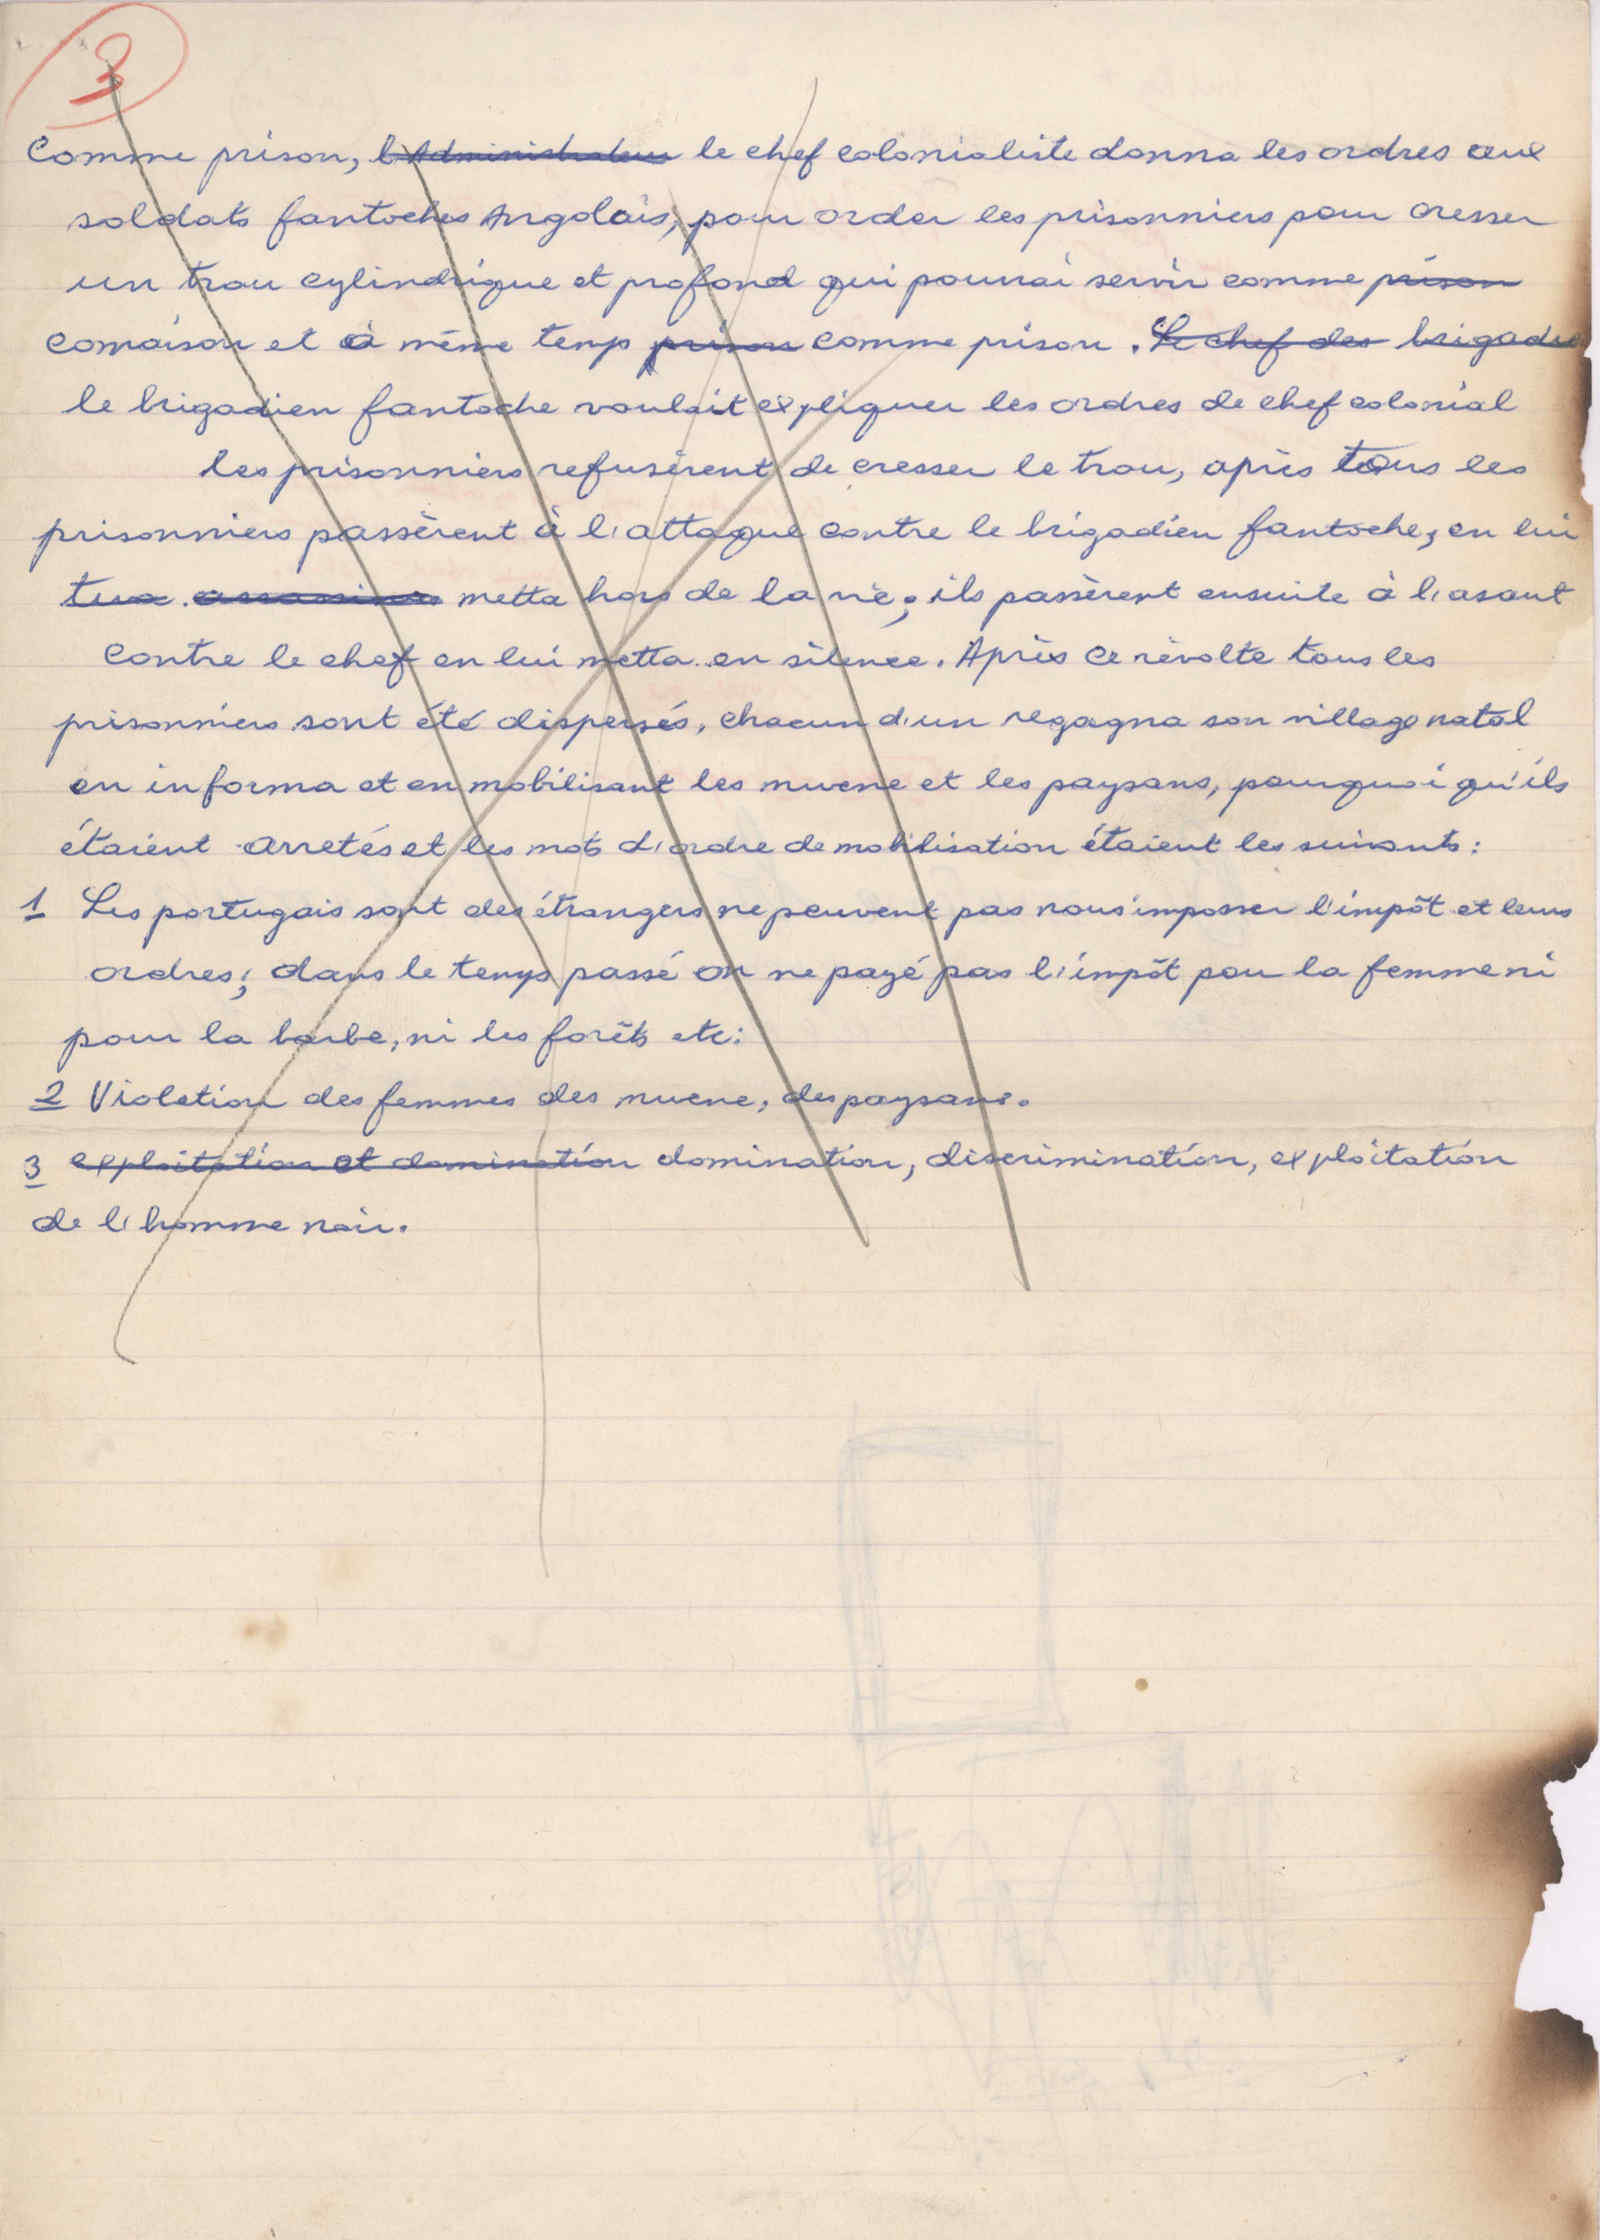 3
Comme prison, l'Administrateur le chef colonialiste donna les ordres aux
soldats fantoches Angolais, pour order les prisonniers pour cresser
un trou cylindrique et profond qui pourrai servir comme prison
comaison et à même temp prison comme prison. Le chef des brigadie
le brigadien fantoche voulait expliquer les ordres de chef colonial
les prisonniers refusèrent de cresser le trou, après tous les
prisonniers passèrent à l'attaque contre le brigadien fantoche, en lui
tua assassina metta hors de la vie; ils passèrent ensuite à l'asaut
contre le chef en lui metta en silence. Après ce révolte tous les
prisonniers sont été dispersés, chacun d'un regagna son village natal
en informa et en mobilisant les muene et les paysans, pourquoi qu'ils
étaient arretés et les mots d'ordre de mobilisation étaient les suivants:
1 Les portugais sont des étrangers ne peuvent pas nous imposser l'impôt et leurs
ordres; dans le temps passé on ne payé pas l'impôt pou la femme ni
pour la barbe, ni les forêts etc:
2 Violation des femmes des muene, des paysans.
3 exploitation et domination domination, discrimination, exploitation
de l'homme noir.